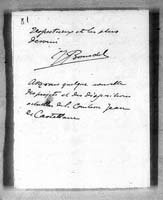 81
respectueux et les plus
dévoué
Bourdel
Avez vous quelque nouvelle
des projets et des dispositions
actuelles de l. Comtesse Jean
de Castellane